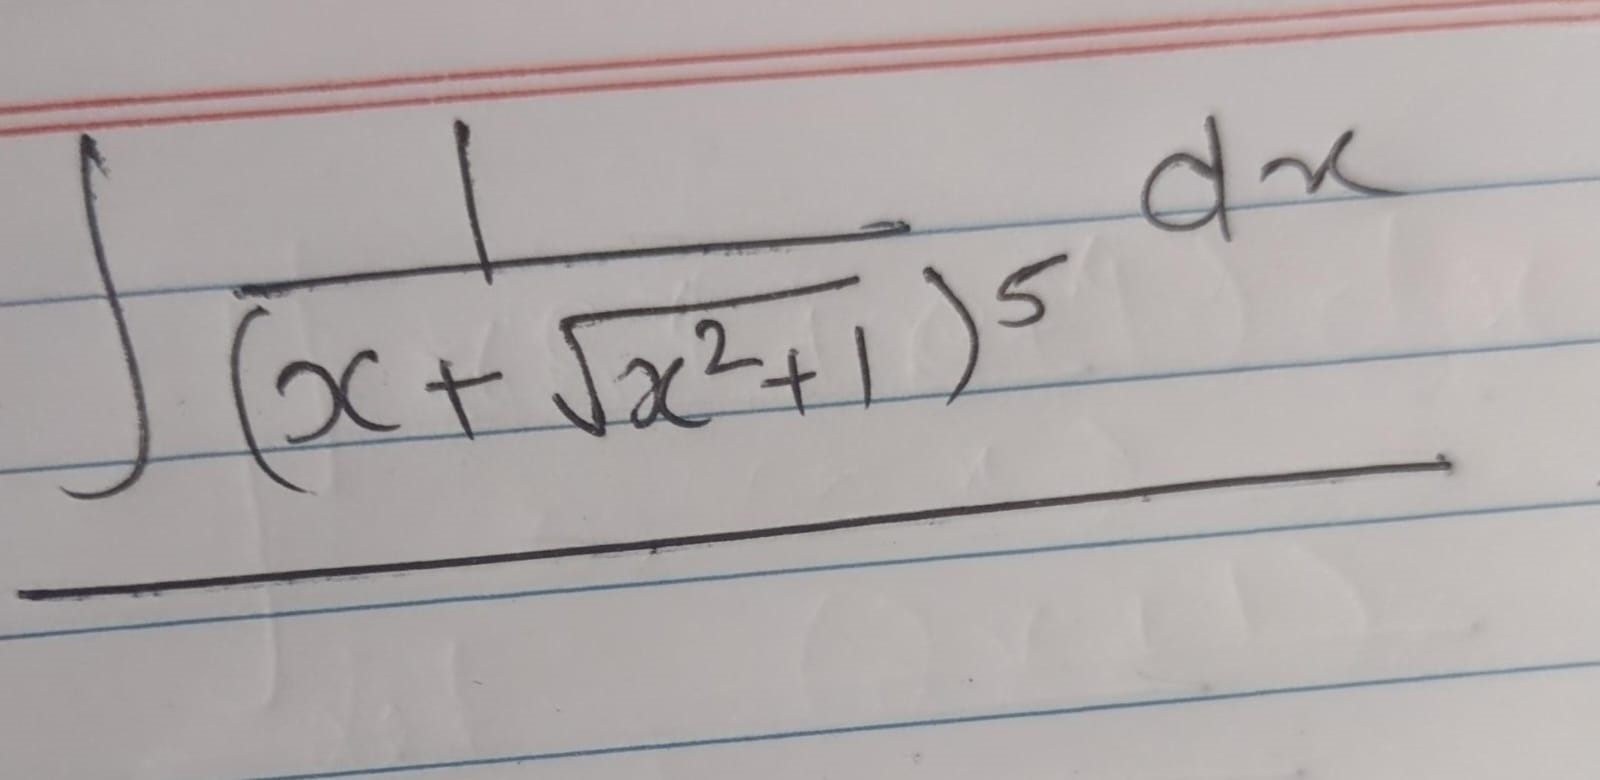 ∫ 1/(x + √(x² + 1))⁵ dx